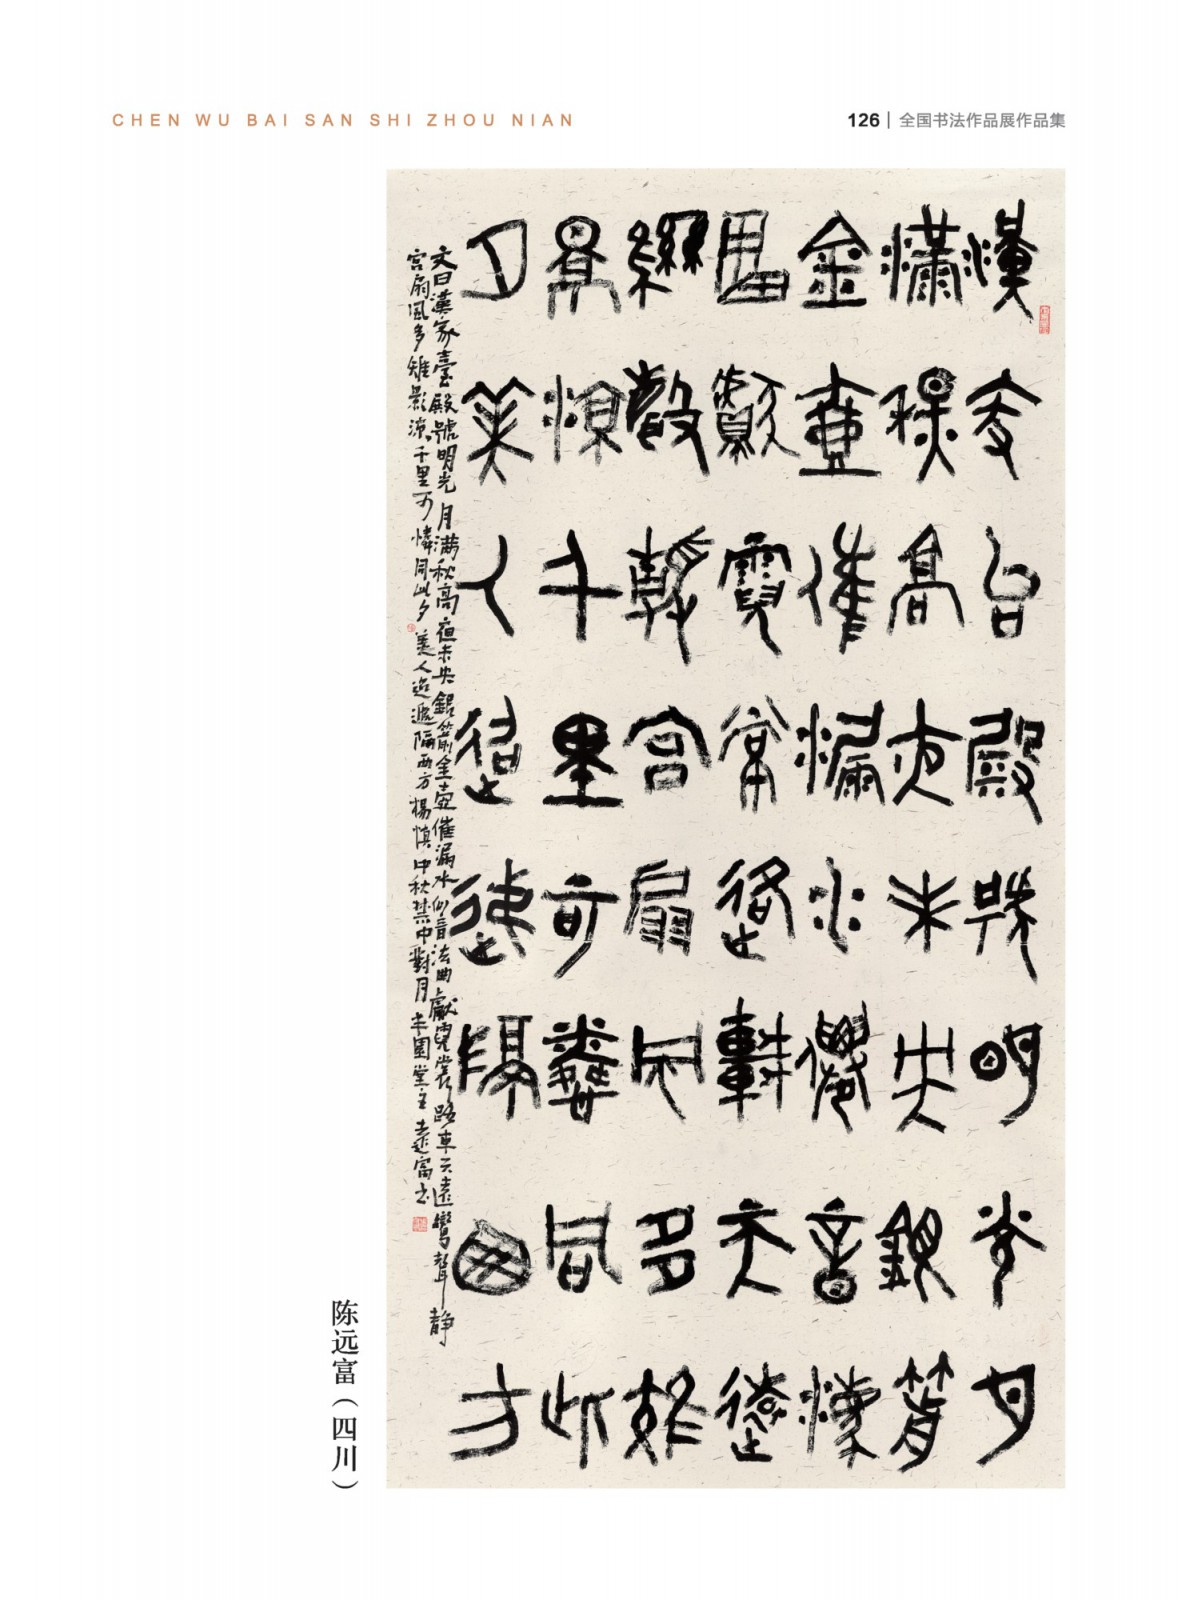 CHEN WU BAI SAN SHI ZHOU NIAN
126 | 全国书法作品展作品集
漢家台殿號明光月
滿秋高夜未央銀箭
金壺催漏水僊音法
曲獻霓裳路車天遠
鸞聲静宮扇風多雉
影涼千里可憐同此
夕美人迢遞隔西方
文曰漢家臺殿號明光月滿秋高夜未央銀箭金壺催漏水仙音法曲獻霓裳路車天遠鸞聲静
宮扇風多雉影涼千里可憐同此夕美人迢遞隔西方楊慎中秋禁中對月半園堂主遠富书
陈远富（四川）